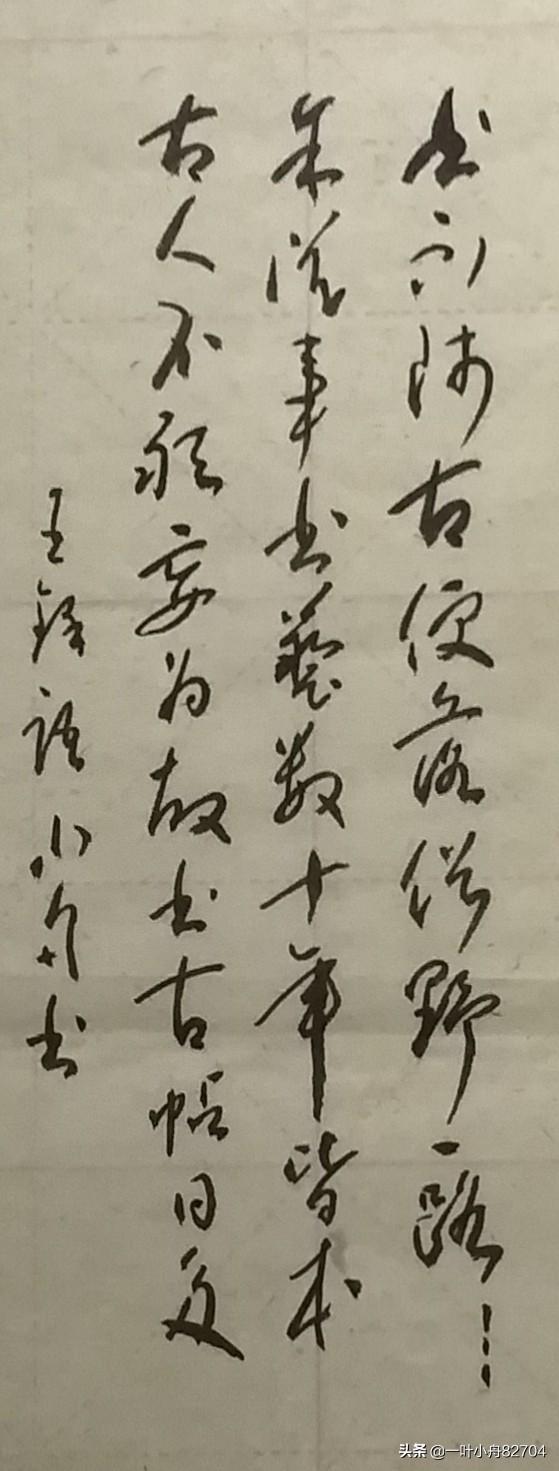 书不师古便落俗野一路…
余从事书艺数十年皆本
古人不敢妄为故书古帖日
王铎语小舟书
头条 @一叶小舟82704